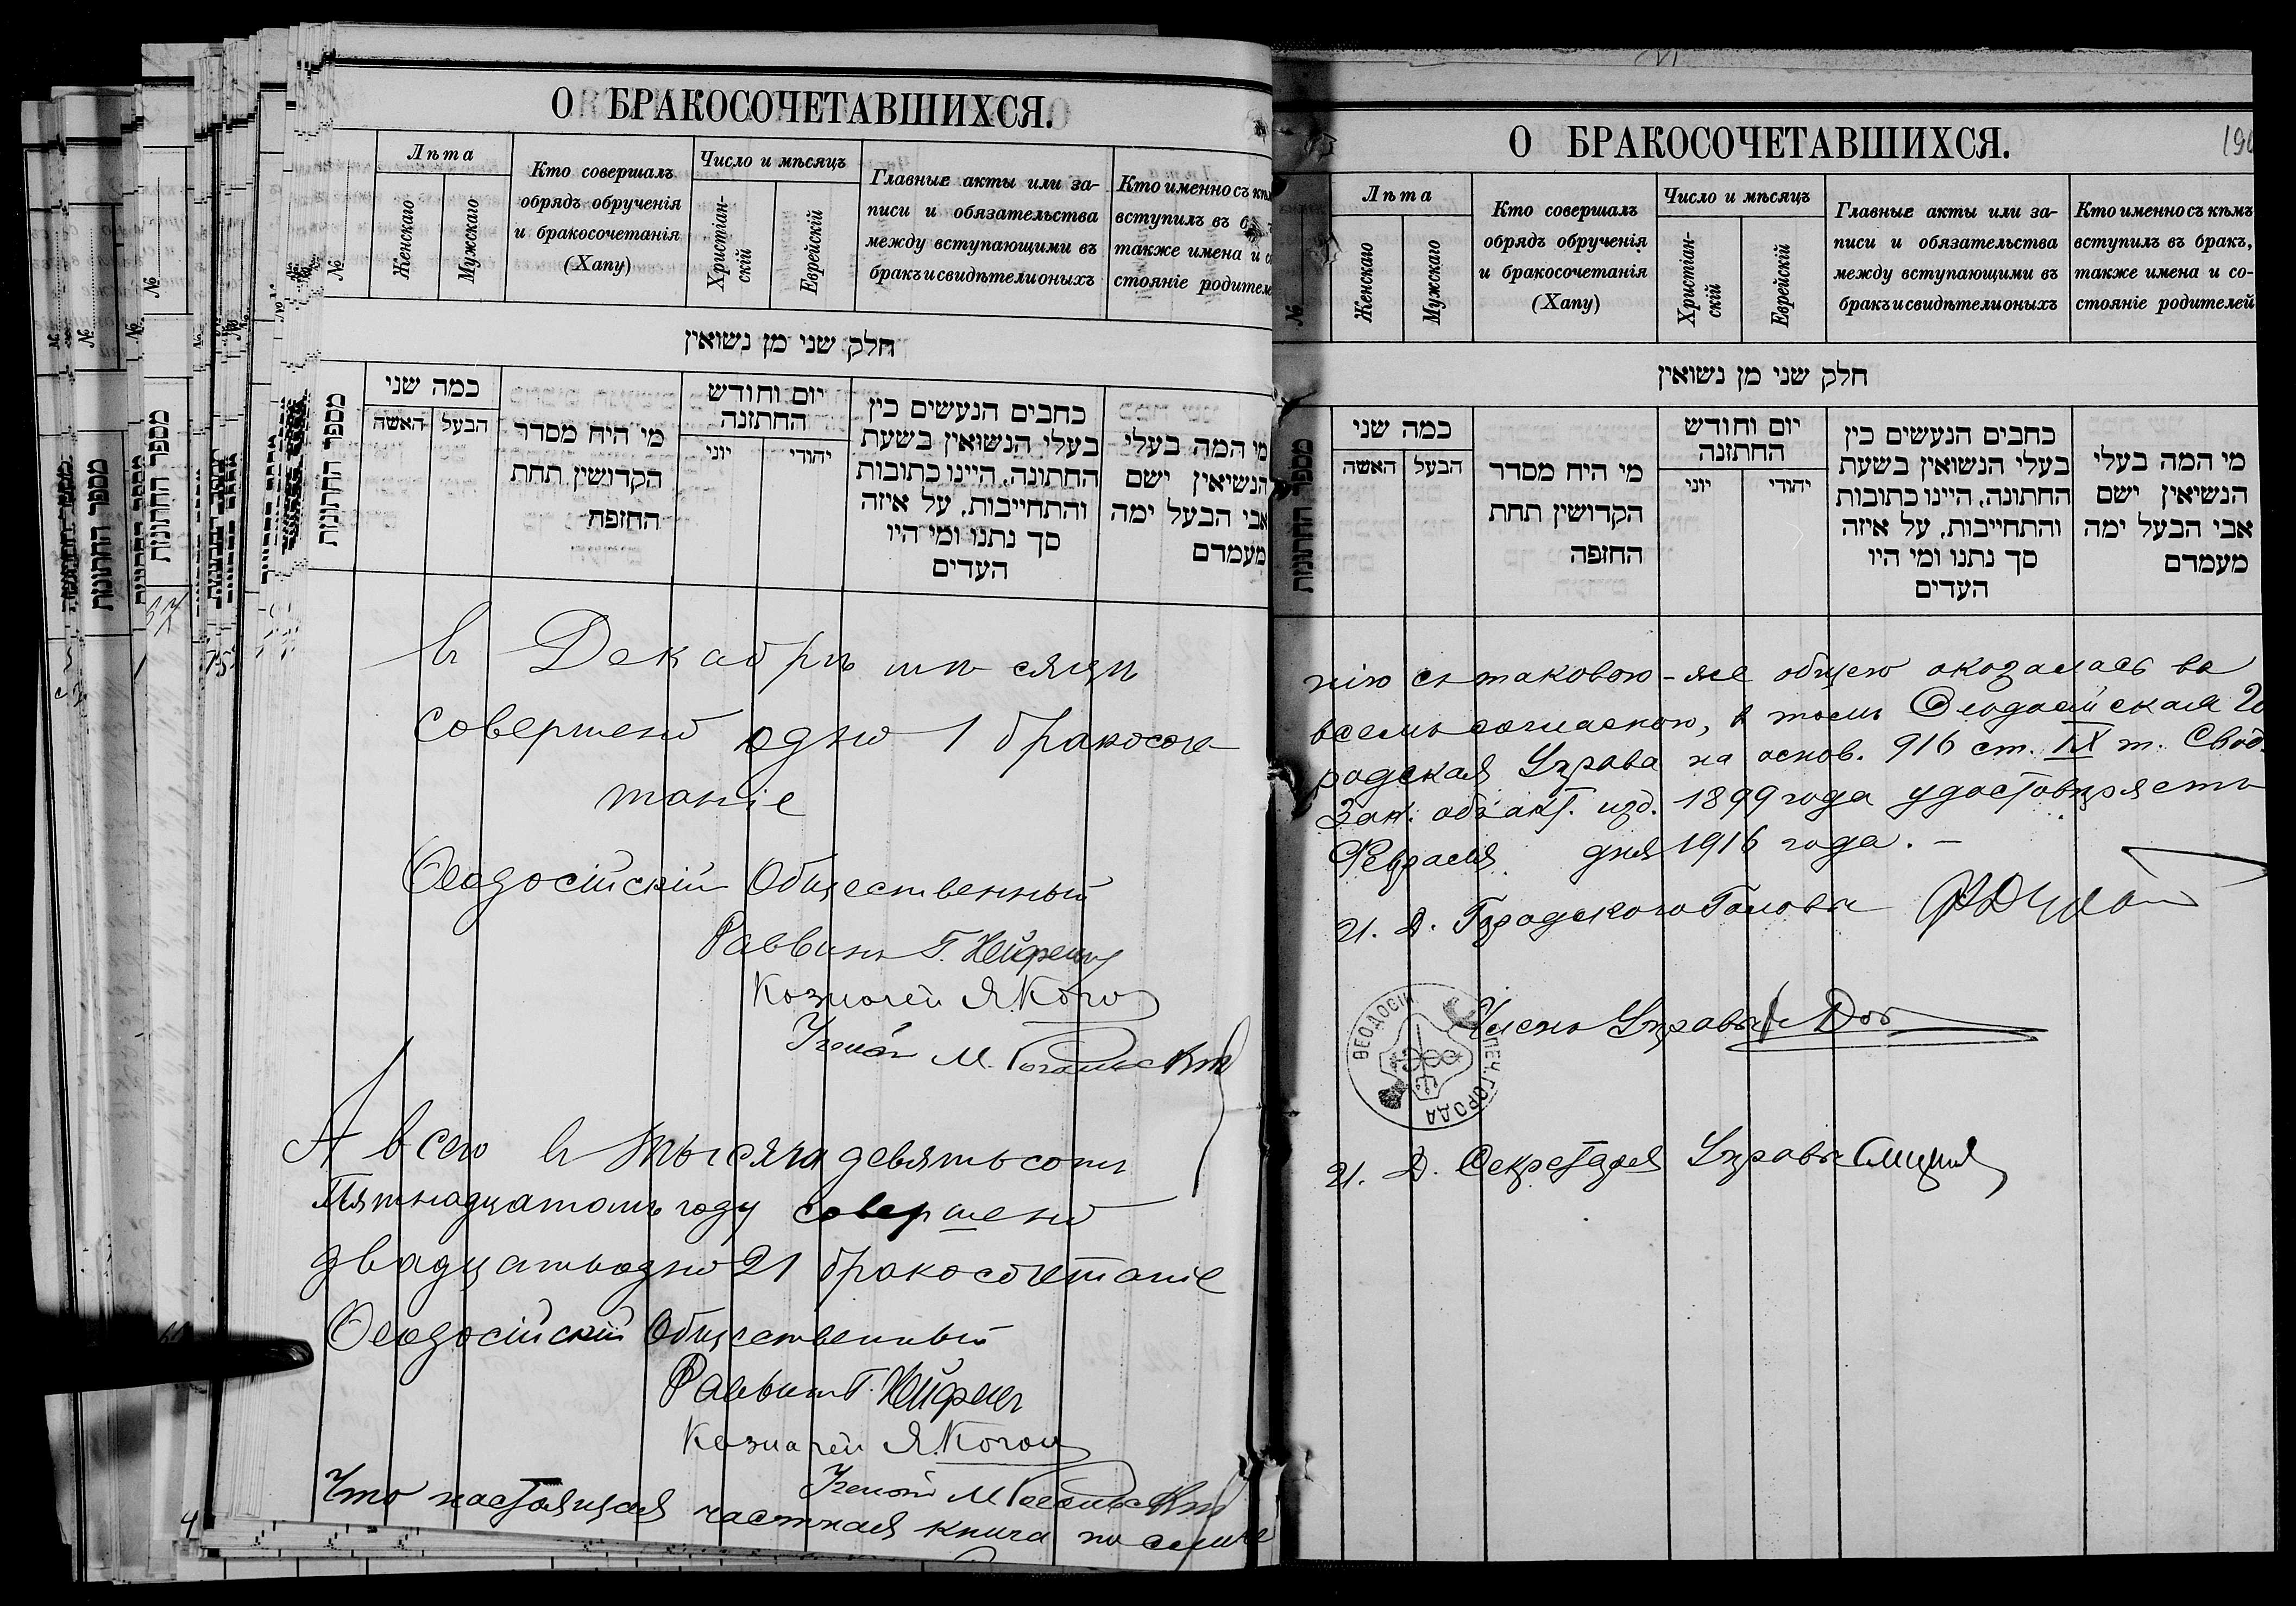 О БРАКОСОЧЕТАВШИХСЯ.
№
Лѣта
Женскаго
Мужскаго
Кто совершалъ
обрядъ обрученія
и бракосочетанія
(Хапу)
Число и мѣсяцъ
Христіан-
скій
Еврейскій
Главные акты или за-
писи и обязательства
между вступающими въ
бракъ и свидѣтели оныхъ
Кто именно съ кѣм
вступилъ въ б
также имена и с
стояніе родителе
חלק שני מן נשואין
מספר החתונות
כמה שני
האשה
הבעל
מי היח מסדר
הקדושין תחת
החזפה
יום וחודש
החתזנה
יוני
יהודי
כחבים הנעשים כין
בעלי הנשואין בשעת
החתונה, היינו כתובות
והתחייבות, על איזה
סך נתנו ומי היו
העדים
מי המה בעלי
הנשיאין ישם
אבי הבעל ימה
מעמדם
въ Декабрѣ мѣсяцѣ
совершено одно 1 бракосоче
таніе
Ѳеодосійскій Общественный
Раввинъ Г.
Казначей Я. Коган
Ученый М.
А всего въ тысяча девятьсотъ
Пятнадцатомъ году совершено
двадцатьодно 21 бракосочетаніе
Ѳеодосійскій Общественный
Раввинъ Г.
Казначей Я. Коган
Ученый М.
Что настоящая частная книга по сличе
О БРАКОСОЧЕТАВШИХСЯ.
190
№
Лѣта
Женскаго
Мужскаго
Кто совершалъ
обрядъ обрученія
и бракосочетанія
(Хапу)
Число и мѣсяцъ
Христіан-
скій
Еврейскій
Главные акты или за-
писи и обязательства
между вступающими въ
бракъ и свидѣтели оныхъ
Кто именно съ кѣмъ
вступилъ въ бракъ,
также имена и со-
стояніе родителей
חלק שני מן נשואין
מספר החתונות
כמה שני
האשה
הבעל
מי היח מסדר
הקדושין תחת
החזפה
יום וחודש
החתזנה
יוני
יהודי
כחבים הנעשים כין
בעלי הנשואין בשעת
החתונה, היינו כתובות
והתחייבות, על איזה
סך נתנו ומי היו
העדים
מי המה בעלי
הנשיאין ישם
אבי הבעל ימה
מעמדם
нію съ таковою-же общею оказалась во
всемъ согласною, въ томъ Ѳеодосійская Го
родская Управа на основ. 916 ст. IX т. Свод.
Зак. объ акт. изд. 1899 года удостовѣряетъ
Февраля дня 1916 года. —
И. Д. Городского Головы
Членъ Управы
ѲЕОДОСІИ ПЕЧ. ГОРОДА
И. Д. Секретаря Управы